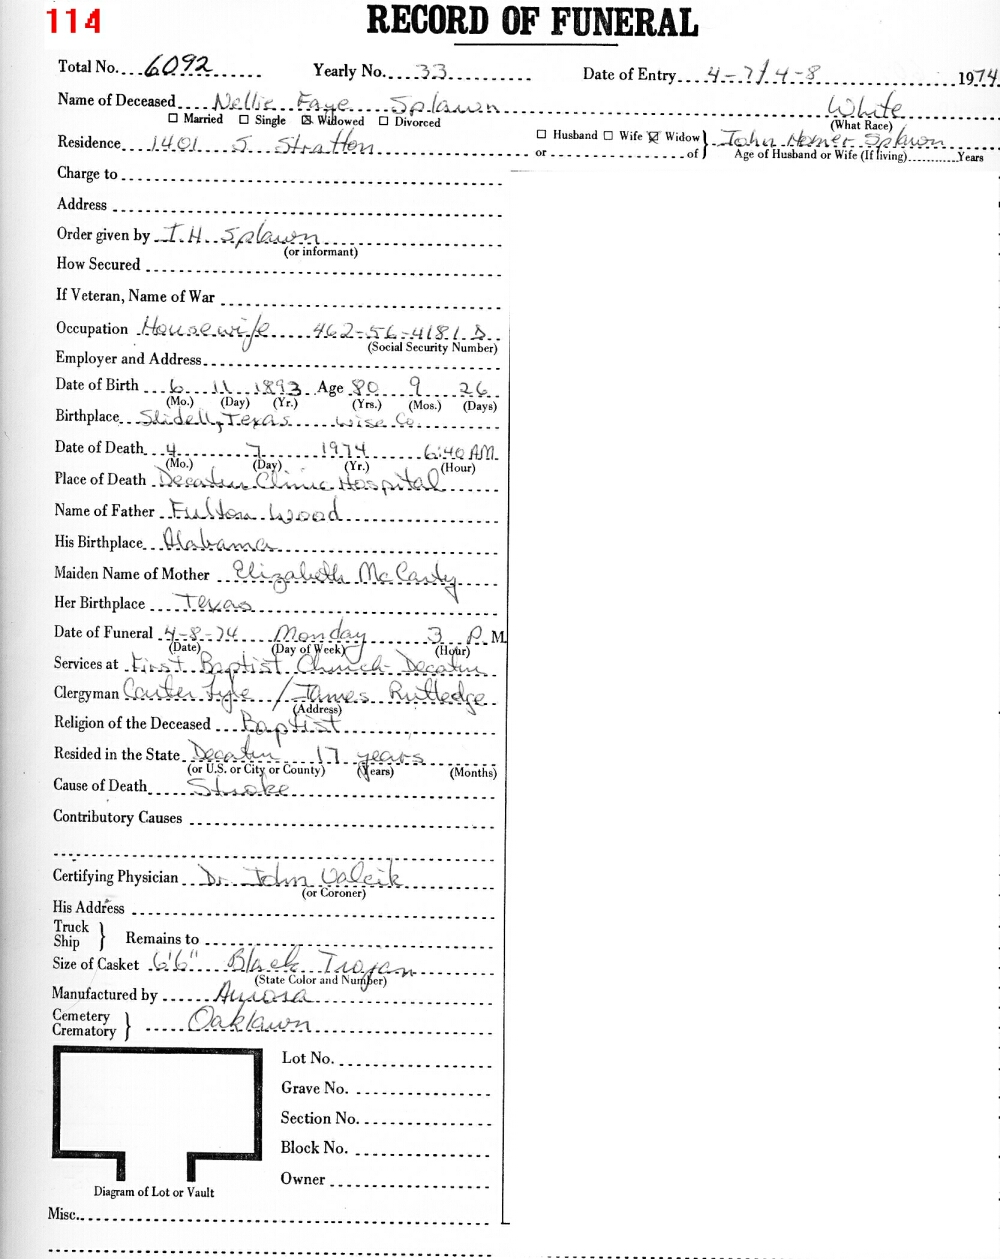 114
RECORD OF FUNERAL
Total No. 6092 Yearly No. 33 Date of Entry 4-7/4-8 1974
Name of Deceased Nellie Faye Splawn White
☐ Married ☐ Single ☒ Widowed ☐ Divorced (What Race)
Residence 1401 S. Stratton ☐ Husband ☐ Wife ☒ Widow } John Homer Splawn
or of Age of Husband or Wife (If living) Years
Charge to
Address
Order given by J.H. Splawn
(or informant)
How Secured
If Veteran, Name of War
Occupation Housewife 462-56-4181 D
(Social Security Number)
Employer and Address
Date of Birth 6 11 1893 Age 80 9 26
(Mo.) (Day) (Yr.) (Yrs.) (Mos.) (Days)
Birthplace Slidell, Texas Wise Co.
Date of Death 4 7 1974 6:40 AM
(Mo.) (Day) (Yr.) (Hour)
Place of Death Decatur Clinic Hospital
Name of Father Fulton Wood
His Birthplace Alabama
Maiden Name of Mother Elizabeth McCarty
Her Birthplace Texas
Date of Funeral 4-8-74 Monday 3 P. M.
(Date) (Day of Week) (Hour)
Services at First Baptist Church-Decatur
Clergyman Carter Lyle / James Rutledge
(Address)
Religion of the Deceased Baptist
Resided in the State Decatur 17 years
(or U.S. or City or County) (Years) (Months)
Cause of Death Stroke
Contributory Causes
Certifying Physician Dr. John Valcik
(or Coroner)
His Address
Truck
Ship } Remains to
Size of Casket 6'6" Black Trojan
(State Color and Number)
Manufactured by Aurora
Cemetery
Crematory } Oaklawn
Lot No.
Grave No.
Section No.
Block No.
Owner
Diagram of Lot or Vault
Misc.